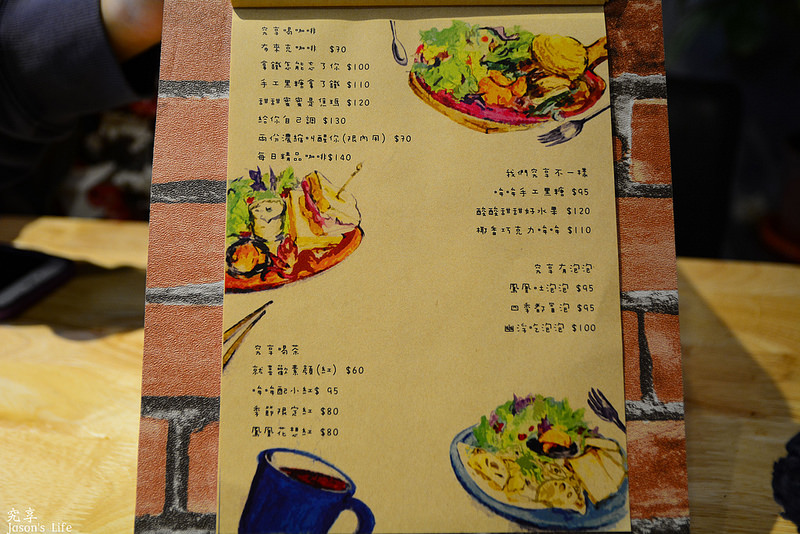 究享喝咖啡
布來克咖啡 $70
拿鐵怎能忘了你 $100
手工黑糖拿了鐵 $110
甜甜蜜蜜是焦瑪 $120
給你自己調 $130
兩份濃縮叫醒你(限內用) $70
每日精品咖啡$140
我們究享不一樣
哞哞手工黑糖 $95
酸酸甜甜好水果 $120
擲番巧克力哞哞 $110
究享有泡泡
鳳凰吐泡泡 $95
四季都冒泡 $95
幽浮吃泡泡 $100
究享喝茶
就喜歡素顏(紅) $60
哞哞配小紅$ 95
季節限定紅 $80
鳳凰花戀紅 $80
究享
Jason's Life